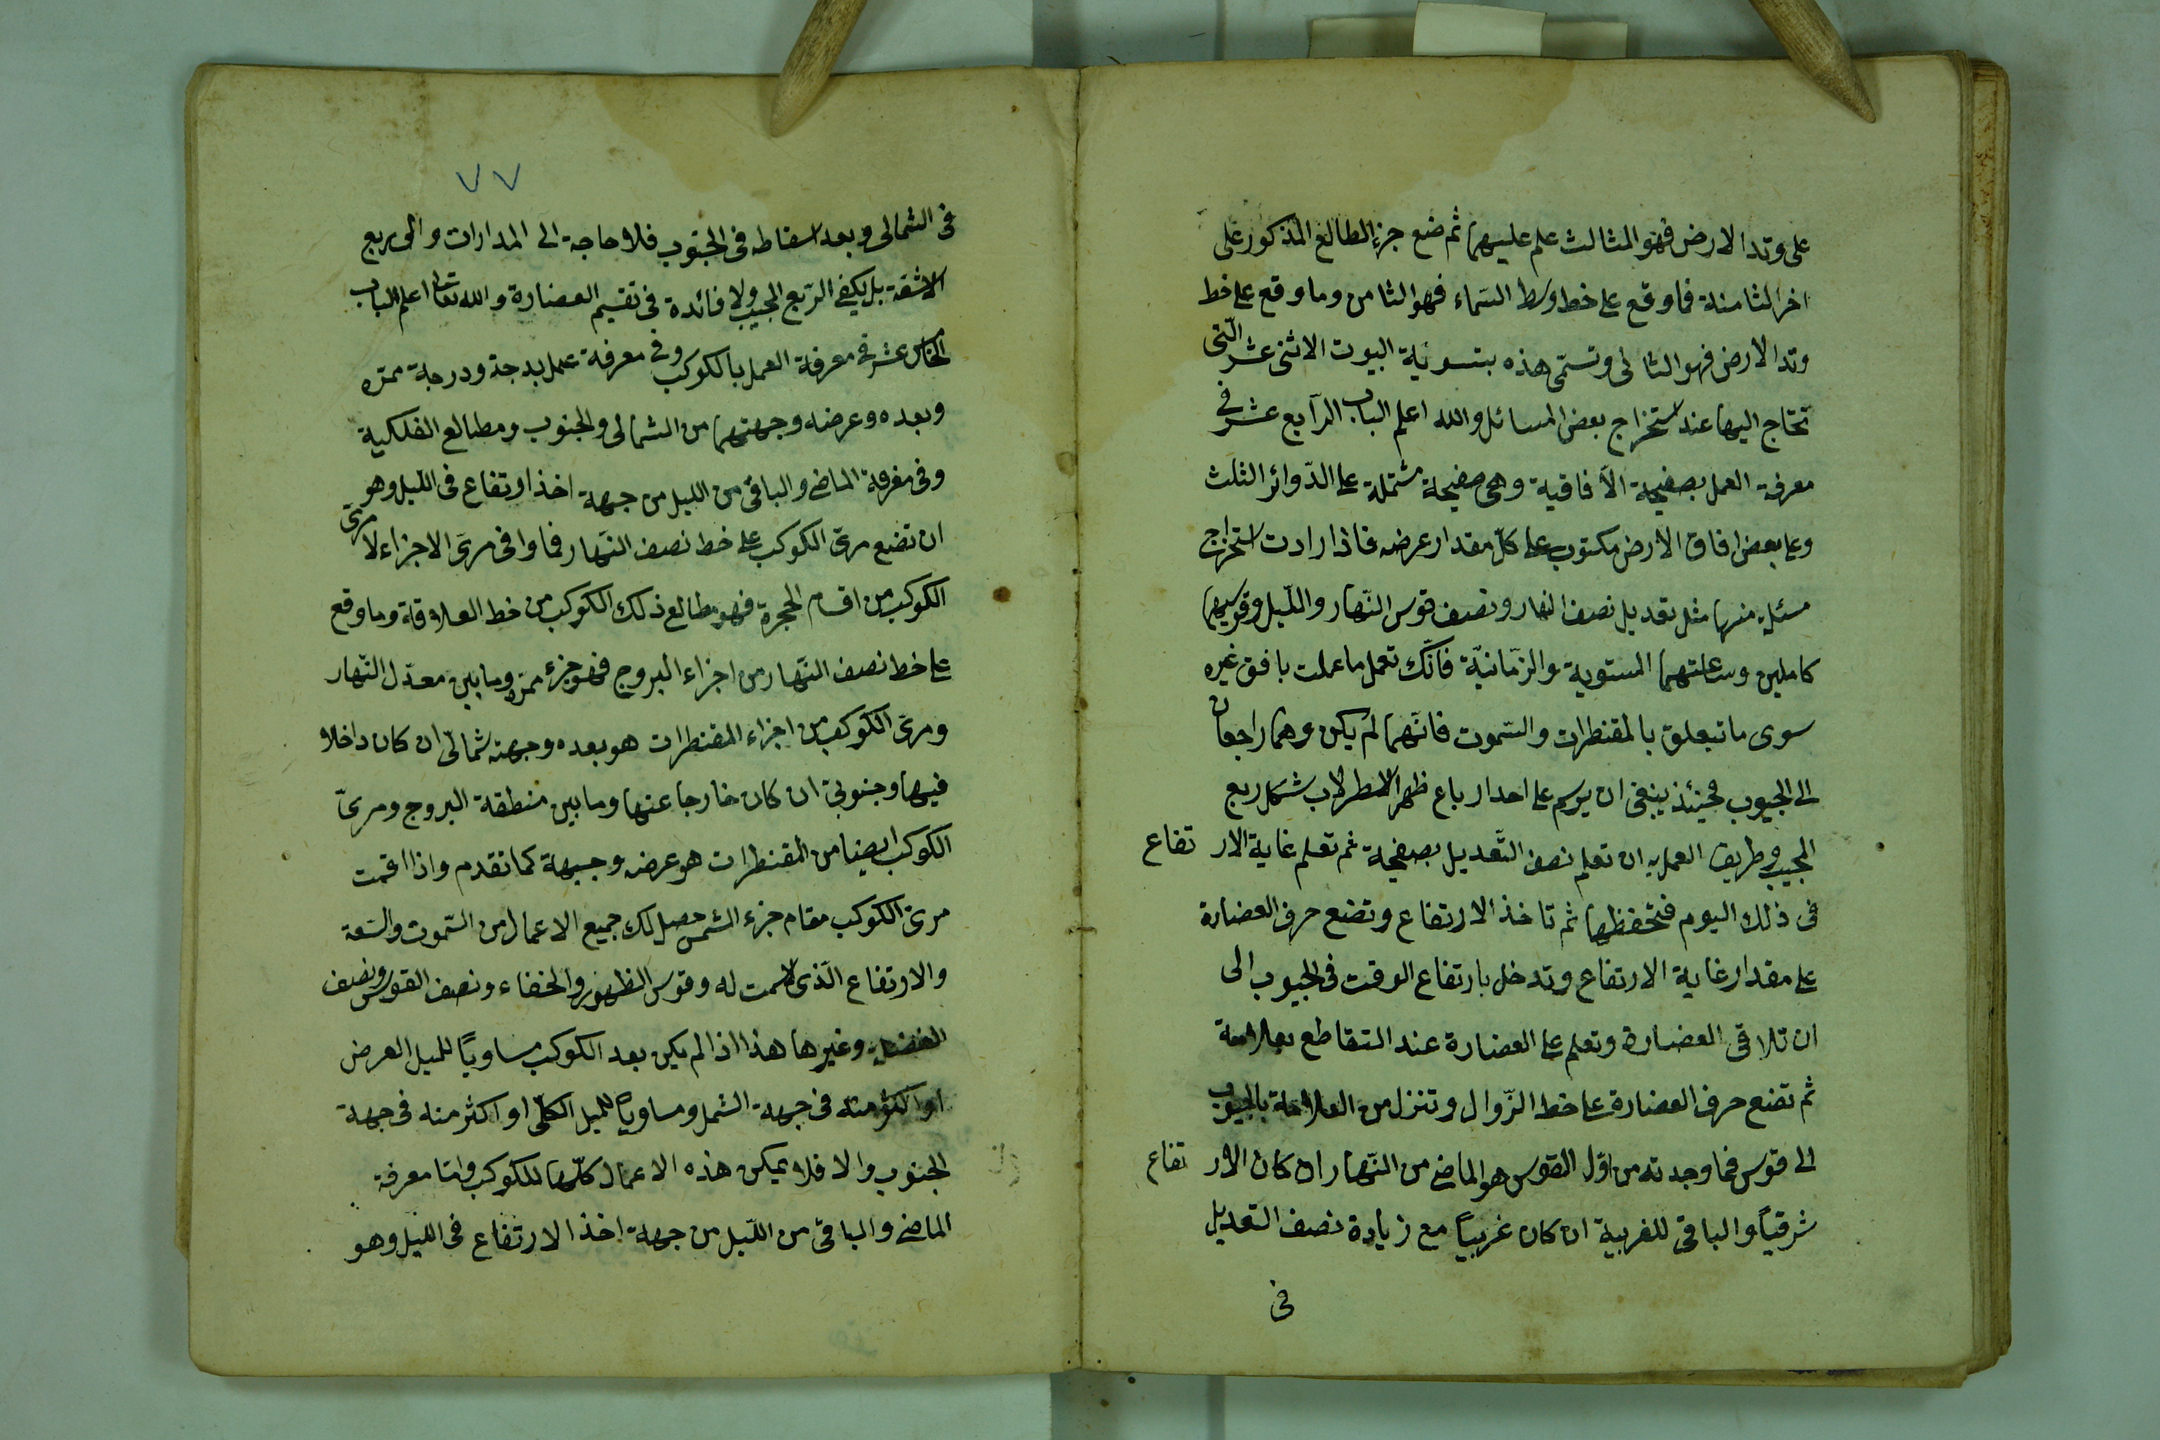 على وتد الارض فهو المثالث علم عليهما ثم ضع جزء الطالع المذكور على
اخر الثامنة فما وقع على خط وسط السماء فهو الثامن وما وقع على خط
وتد الارض فهو الثانى وتسمى هذه بتسوية البيوت الاثنى عشر التى
تحتاج اليها عند استخراج بعض المسائل والله اعلم الباب الرابع عشر فى
معرفة العمل بصفيحة الآفاقية وهى صفيحة مشتملة على الدوائر الثلث
وعلى بعض افاق الارض مكتوب على كل مقدار عرضه فاذا ارادت استخراج
مسئلة منها مثل تعديل نصف النهار ونصف قوس النهار والليل وقوسيهما
كاملين وساعتهما المستوية والزمانية فانك تعمل ما عملت بافق غيره
سوى ما تبعلق بالمقنطرات والسموت فانهما لم يكن وهما راجعان
الى الجيوب فحينئذ ينبغى ان يرسم على احد ارباع ظهر الاسطرلاب شكل ربع
المجيب وطريق العمل به ان تعلم نصف التعديل بصفيحة ثم تعلم غاية الار تفاع
فى ذلك اليوم فتحفظها ثم تاخذ الارتفاع وتضع حرف العضارة
على مقدار غاية الارتفاع وتدخل بارتفاع الوقت فى الجيوب الى
ان تلاقى العضارة وتعلم على العضارة عند التقاطع بعلامة
ثم تضع حرف العضارة على خط الزوال وتنزل من العلامة بالجيوب
الى قوس فما وجدته من اول القوس هو الماضى من النهار ان كان الار تفاع
شرقيا والباقى للغربية ان كان غربيا مع زيادة نصف التعديل
فى
٧٧
فى الشمالى وبعد اسقاطه فى الجنوب فلا حاجة الى المدارات والى ربع
الاشقة بل يكفى الربع المجيب ولا فائدة فى تقسيم العضارة والله تعالى اعلم الباب
الخامس عشر فى معرفة العمل بالكوكب وفى معرفة عمل بدجة ودرجة ممره
وبعده وعرضه وجهتهما من الشمالى والجنوب ومطالع الفلكية
وفى معرفة الماضى والباقى من الليل من جهة اخذ ارتفاع فى الليل وهو
ان تضع مرى الكوكب على خط نصف النهار فما وافى مرى الاجزاء لا مرى
الكوكب من اقسام الحجرة فهو مطالع ذلك الكوكب من خط العلاقة وما وقع
على خط نصف النهار من اجزاء البروج فهو جزء ممره وما بين معدل النهار
ومرى الكوكب من اجزاء المقنطرات هو بعده وجهته شمالى ان كان داخلا
فيها وجنوبى ان كان خارجا عنها وما بين منطقة البروج ومرى
الكوكب ايضا من المقنطرات هو عرضه وجهة كما تقدم واذا اقمت
مرى الكوكب مقام جزء الشمس حصل لك جميع الاعمال من السموت والسعة
والارتفاع الذى لا سمت له وقوس الظهور والخفاء ونصف القوس ونصف
الفضلة وغيرها هذا اذا لم يكن بعد الكوكب مساويا للميل العرض
او اكثر منه فى جهة الشمل ومساويا لميل الكلى او اكثر منه فى جهة
الجنوب والا فلا يمكن هذه الاعمال كلها للكوكب واما معرفة
الماضى والباقى من الليل من جهة اخذ الارتفاع فى الليل وهو